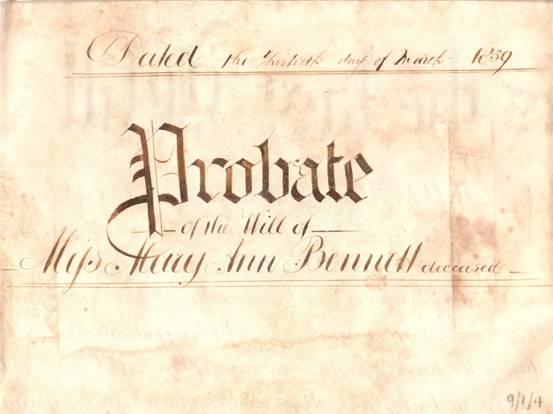 Dated the thirtieth day of March 1859
Probate
of the Will of
Miss Mary Ann Bennett deceased
9/1/4